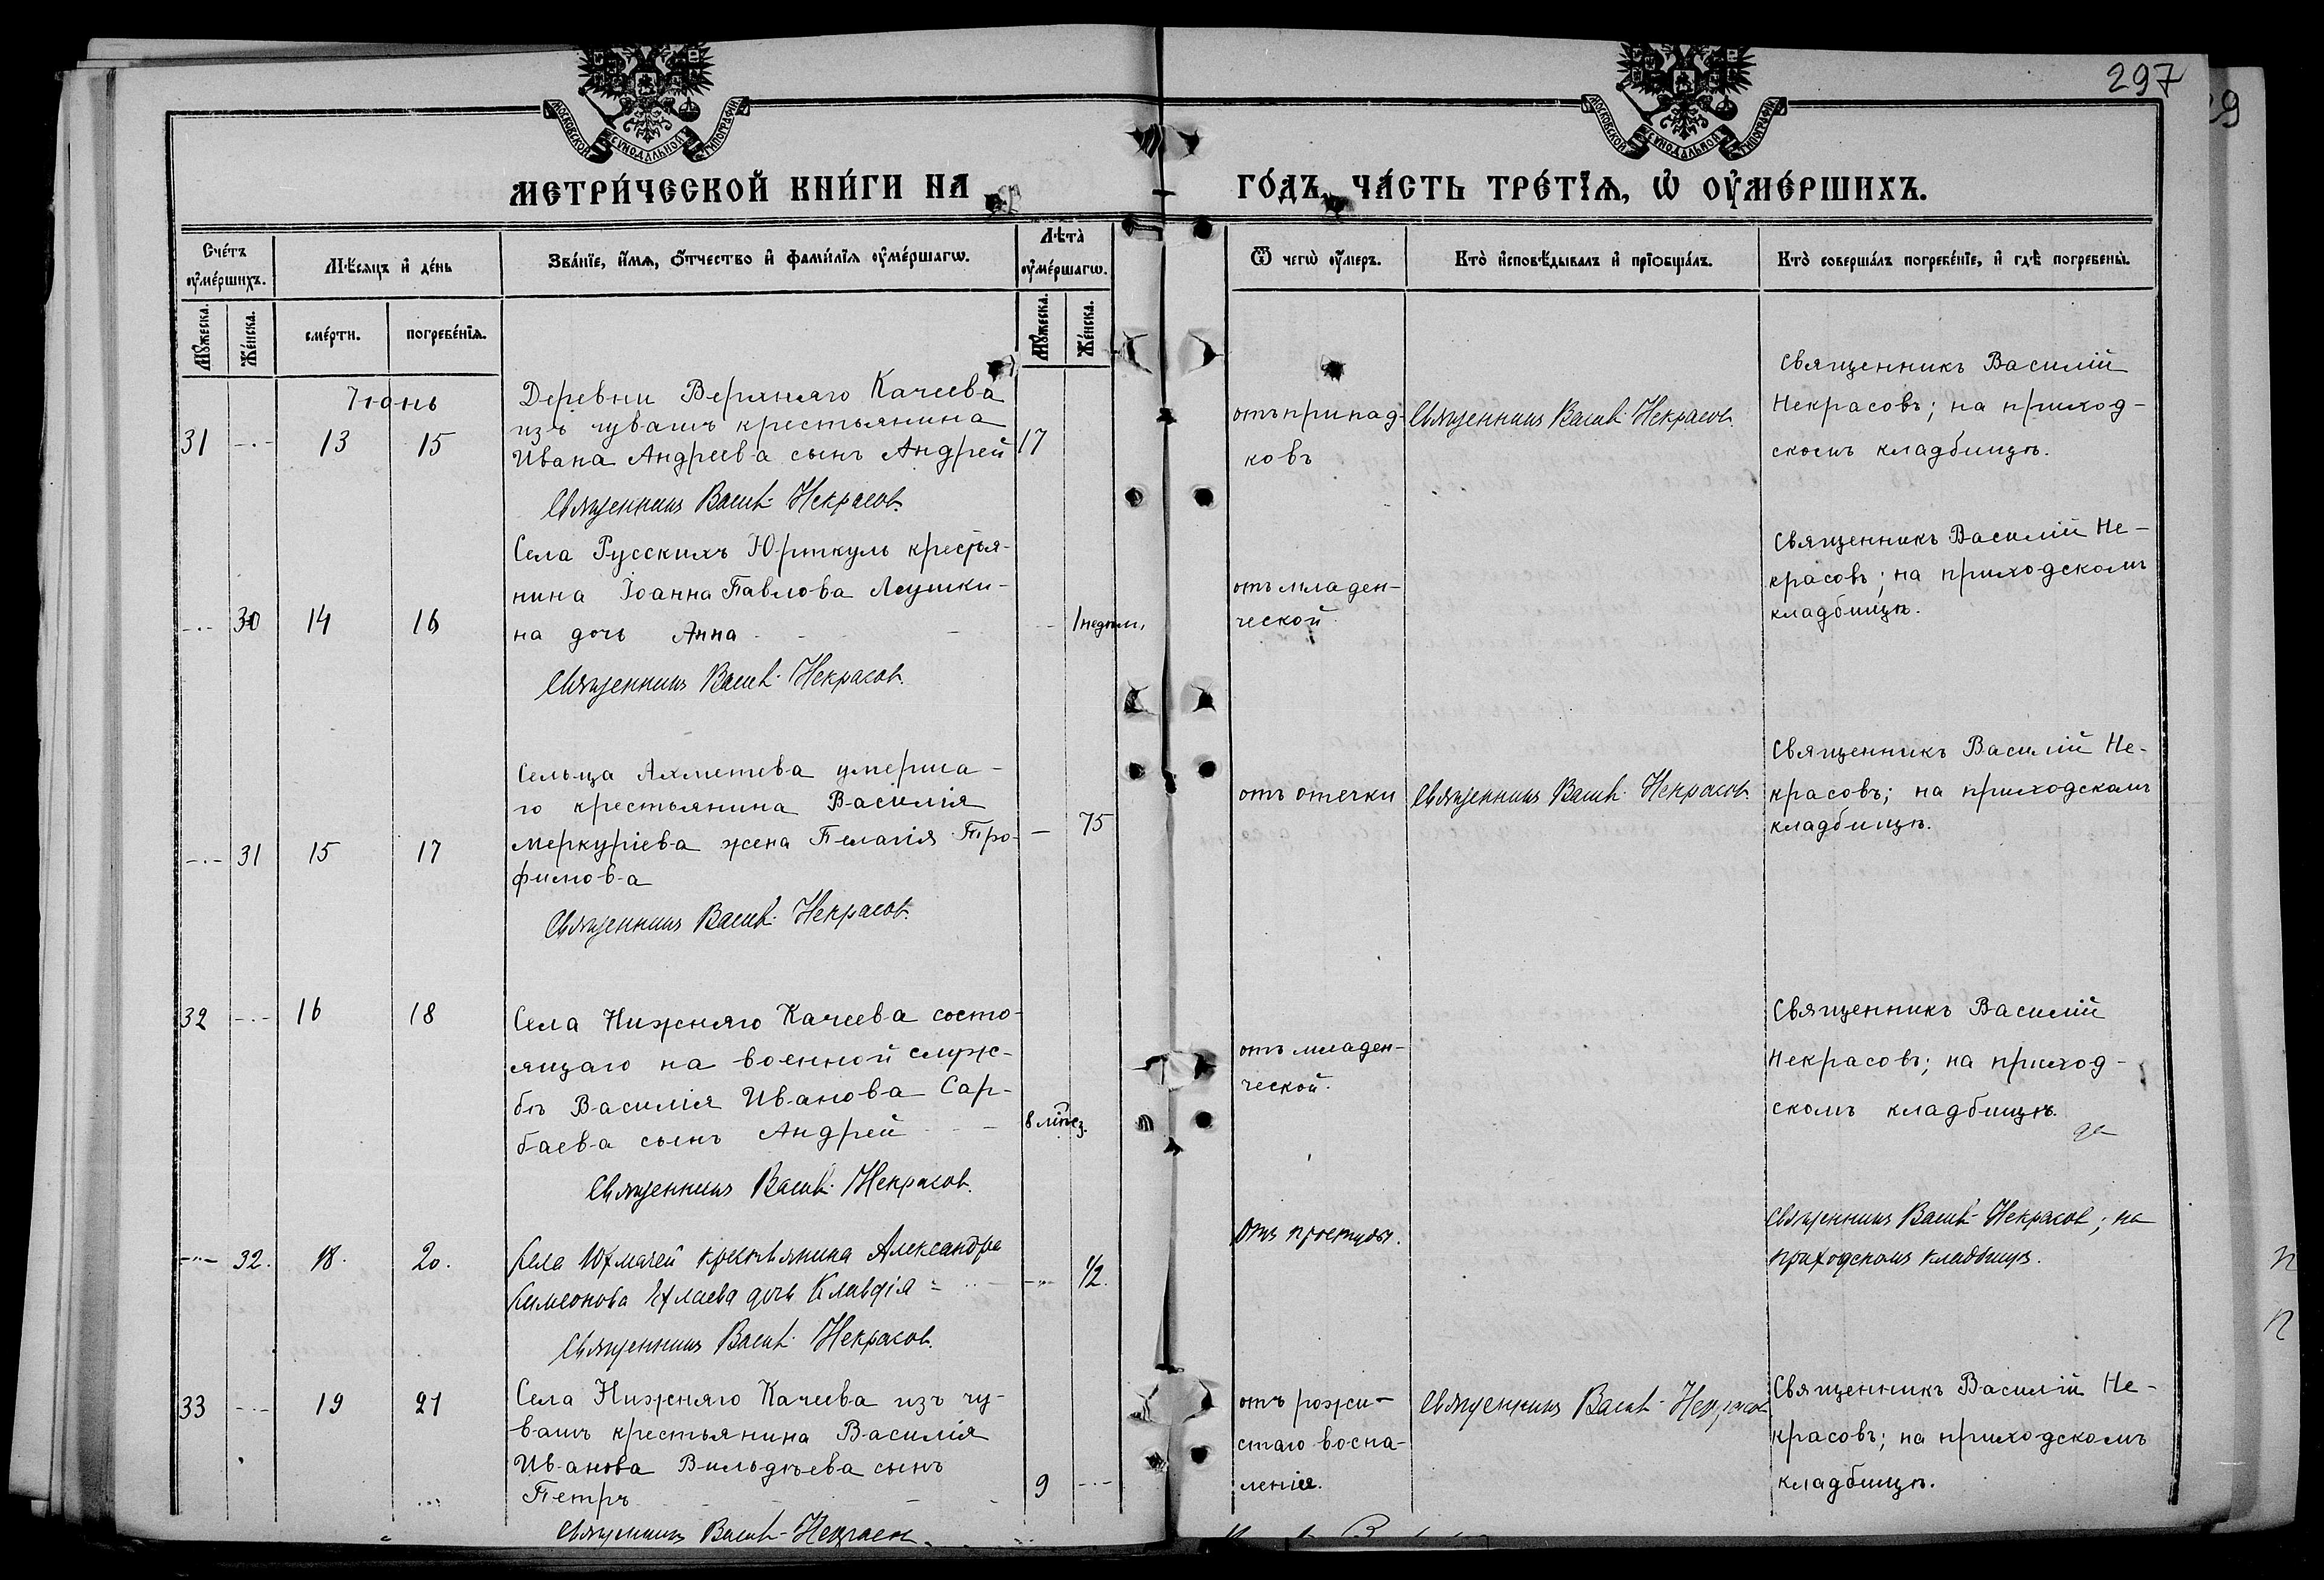 297
МОСКОВСКОЙ СѴНОДАЛЬНОЙ ТИПОГРАФІИ
МОСКОВСКОЙ СѴНОДАЛЬНОЙ ТИПОГРАФІИ
МЕТРИ́ЧЕСКОЙ КНИ́ГИ НА
ГО́ДЪ, ЧА́СТЬ ТРЕ́ТЇѦ, Ѡ҆ ОУ҆МЕ́РШИХЪ.
Сче́тъ оу҆ме́ршихъ.
Мѣ́сяцъ и҆ де́нь
Зва́нїе, и҆́мѧ, ѻ҆́тчество и҆ фами́лїѧ оу҆ме́ршагѡ.
Лѣта̀ оу҆ме́ршагѡ.
Ѿ чегѡ̀ оу҆́меръ.
Кто̀ и҆сповѣ́дывалъ и҆ прїѻбща́лъ.
Кто̀ соверша́лъ погребе́нїе, и҆ гдѣ̀ погребены̀.
Мꙋ́жеска.
Же́нска.
сме́рти.
погребе́нїѧ.
Мꙋ́жеска.
Же́нска.
Іюнь
31 -·- 13 15
Деревни Верхняго Качеева
изъ чувашъ крестьянина
Ивана Андреева сынъ Андрей
17
Священникъ Васил. Некрасовъ.
отъ припад-
ковъ
Священникъ Васил. Некрасовъ.
Священникъ Василій
Некрасовъ; на приход-
скомъ кладбищѣ.
-·- 30 14 16
Села Русскихъ Юрткуль крестья-
нина Іоанна Павлова Леушки-
на дочь Анна
1 недѣли.
Священникъ Васил. Некрасовъ.
отъ младен-
ческой.
Священникъ Василій Не-
красовъ; на приходскомъ
кладбищѣ.
-·- 31 15 17
Сельца Ахметева умерша-
го крестьянина Василія
Меркуріева жена Пелагія Тро-
фимова
— 75
Священникъ Васил. Некрасовъ.
отъ отечки
Священникъ Васил. Некрасовъ.
Священникъ Василій Не-
красовъ; на приходскомъ
кладбищѣ.
32 -·- 16 18
Села Нижняго Качеева состо-
ящаго на военной служ-
бѣ Василія Иванова Сар-
баева сынъ Андрей
8 мѣсяц.
Священникъ Васил. Некрасовъ.
отъ младен-
ческой.
Священникъ Василій
Некрасовъ; на приход-
скомъ кладбищѣ.
-·- 32. 18. 20.
Села Юхмачей крестьянина Александра
Симеонова дочь Клавдія
-·- 1/2.
Священникъ Васил. Некрасовъ.
Отъ простуды.
Священникъ Васил. Некрасовъ; на
приходскомъ кладбищѣ.
33 -·- 19 21
Села Нижняго Качеева изъ чу-
вашъ крестьянина Василія
Иванова Вильдѣева сынъ
Петръ
9 -·-
Священникъ Васил. Некрасовъ.
отъ рожи-
стаго воспа-
ленія.
Священникъ Васил. Некрасовъ
Священникъ Василій Не-
красовъ; на приходскомъ
кладбищѣ.